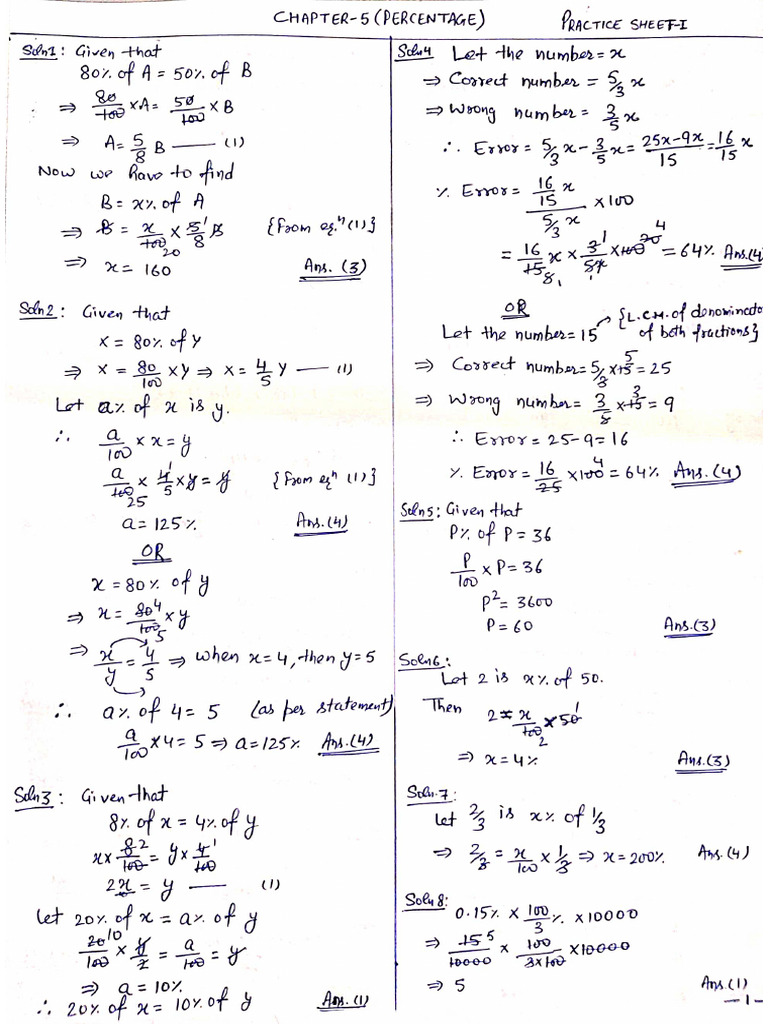 CHAPTER-5 (PERCENTAGE) PRACTICE SHEET-I
Soln1: Given that
80% of A = 50% of B
⇒ 80/100 × A = 50/100 × B
⇒ A = 5/8 B —— (1)
Now we have to find
B = x% of A
⇒ B = x/100 × 5/8 B {From eqn (1)}
20
⇒ x = 160 Ans. (3)
Soln2: Given that
x = 80% of y
⇒ x = 80/100 × y ⇒ x = 4/5 y —— (1)
Let a% of x is y.
∴ a/100 × x = y
a/100 × 4/5 × y = y {From eqn (1)}
25
a = 125% Ans. (4)
OR
x = 80% of y
⇒ x = 80/100 × y
⇒ x/y = 4/5 ⇒ when x=4, then y=5
∴ a% of 4 = 5 (as per statement)
a/100 × 4 = 5 ⇒ a = 125% Ans. (4)
Soln3: Given that
8% of x = 4% of y
x × 8/100 = y × 4/100
2x = y —— (1)
Let 20% of x = a% of y
20/100 × y/2 = a/100 = y
⇒ a = 10%
∴ 20% of x = 10% of y Ans. (1)
Soln4 Let the number = x
⇒ Correct number = 5/3 x
⇒ Wrong number = 3/5 x
∴ Error = 5/3 x - 3/5 x = 25x-9x/15 = 16/15 x
% Error = 16/15 x / 5/3 x × 100
= 16/15 x × 3/5x × 100 = 64% Ans. (4)
OR
Let the number = 15 {L.C.M. of denominato of both fractions}
⇒ Correct number = 5/3 × 15 = 25
⇒ Wrong number = 3/5 × 15 = 9
∴ Error = 25-9 = 16
% Error = 16/25 × 100 = 64% Ans. (4)
Soln5: Given that
P% of P = 36
P/100 × P = 36
P² = 3600
P = 60 Ans. (3)
Soln6:
Let 2 is x% of 50.
Then 2 = x/100 × 50
⇒ x = 4% Ans. (3)
Soln.7:
Let 2/3 is x% of 1/3
⇒ 2/3 = x/100 × 1/3 ⇒ x = 200% Ans. (4)
Soln8:
0.15% × 100/3 % × 10000
⇒ 15/10000 × 100/3×100 × 10000
⇒ 5 Ans. (1)
-1-